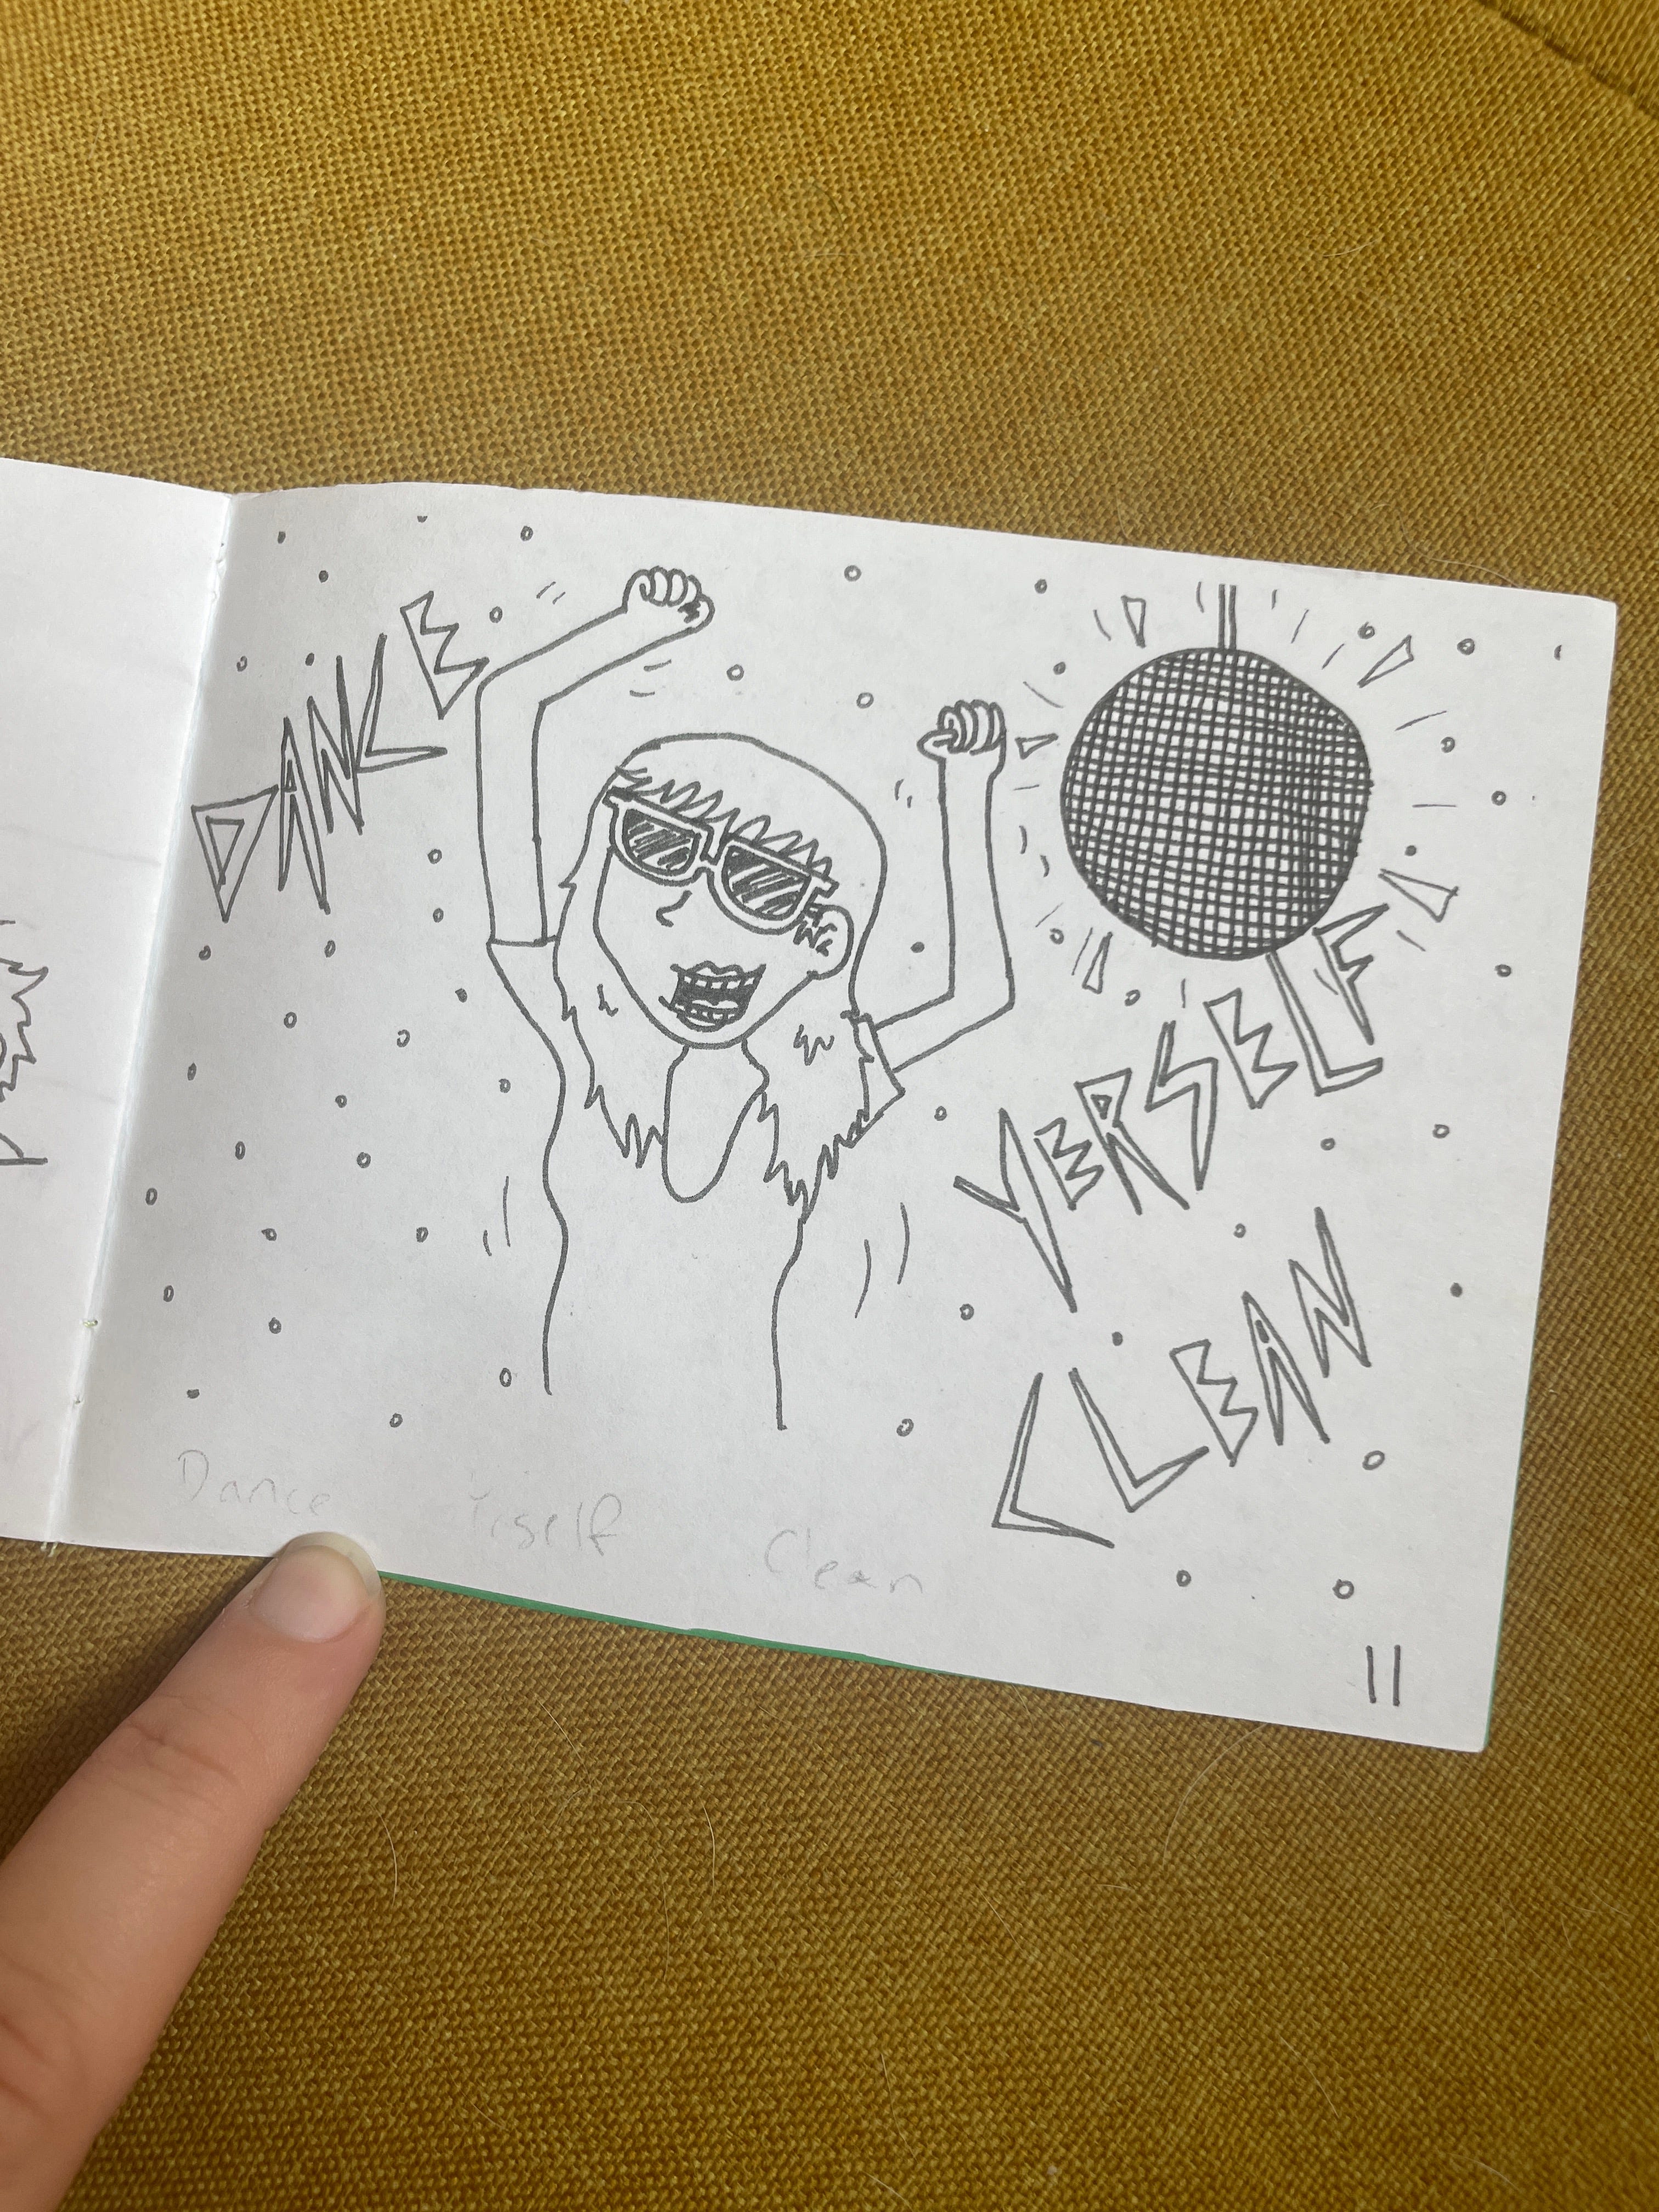 DANCE
YERSELF
CLEAN
Dance Clean
11